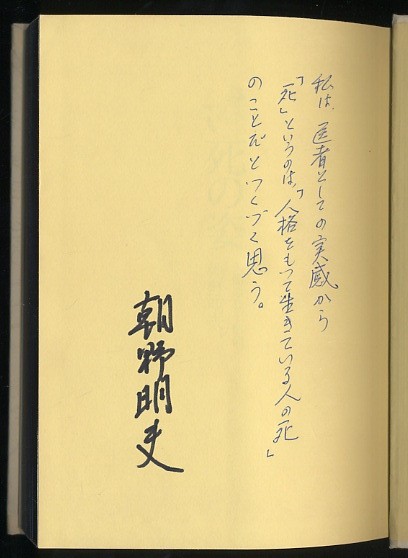 私は、医者としての実感から
「死」というのは、「人格をもって生きている人の死」
のことだとつくづく思う。
朝野明夫